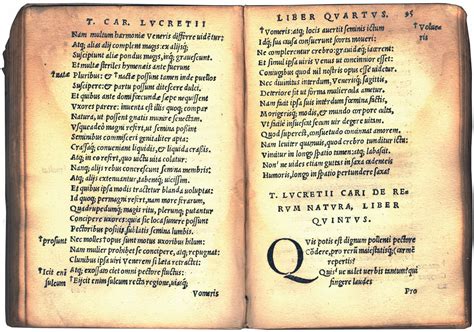 T. CAR. LVCRETII
Nam multum harmoniæ Veneris differre uidētur;
Atq; alias alij complent magis ex alijsq;
Succipiunt aliæ pondus magis, inq; grauescunt.
Et multæ steriles hymeneis ante fuerunt
†natæ Pluribus: & †nactæ possunt tamen unde puellos
Suscipere: & partu possunt ditescere dulci.
Et quibus ante domi fœcundæ sæpe nequissent
Vxores parere: inuenta est illis quoq; compar
Natura, ut possent gnatis munire senectam.
Vsqueadeo magni refert, ut semina possint
Seminibus commisceri genitaliter apta:
Crassaq; conueniant liquidis, & liquida crassis.
Atq; in eo refert, quo uictu uita colatur:
Namq; alijs rebus concrescunt semina membris,
Atq; alijs extenuantur, tabentq; uicissim.
Et quibus ipsa modis tractetur blanda uoluptas:
Id quoq; permagni refert, nam more ferarum,
Quadrupedumq; magis ritu, plerunq; putantur
Concipere uxores: quia sic loca sumere possunt
Pectoribus positis sublatis semina lumbis.
†prosunt Nec molles †opus sunt motus uxoribus hilum:
Nam mulier prohibet se concipere, atq; repugnat
Clunibus ipsa uiri Venerem si læta retractet:
†Icit enī sulcum Atq; exossato ciet omni pectore fluctus:
†Eijcit enim sulcum recta regione, uiaq;
Vomeris
LIBER QVARTVS. 95
†Vomeris: atq; locis auertit seminis ictum †Vomeris
Idq; sua causa consuerunt scorta moueri:
Ne complerentur crebro: grauidæq; iacerent:
Et simul ipsa uiris Venus ut concinnior esset:
Coniugibus quod nil nostris opus esse uidetur.
Nec diuinitus interdum, Venerisq́; sagittis,
Deteriore fit ut forma muliercula ametur.
Nam facit ipsa suis interdum fœmina factis,
Morigerisq; modis, & mundo corpore cultu,
Vt facile insuescat secum uir degere uitam.
Quod superest, consuetudo concinnat amorem.
Nam leuiter quamuis, quod crebro tunditur ictu:
Vincitur in longo spatio tamen, atq; labascit.
Nonne uides etiam guttas in saxa cadenteis
Humoris, longo in spatio pertundere saxa?
T. LVCRETII CARI DE RERVM
NATVRA, LIBER
QVINTVS.
Quis potis est dignum pollenti pectore
Cōdere, pro rerū maiestatiq́; carmē
repertis?
Quis ue ualet uerbis tantum? qui
fingere laudes
Pro